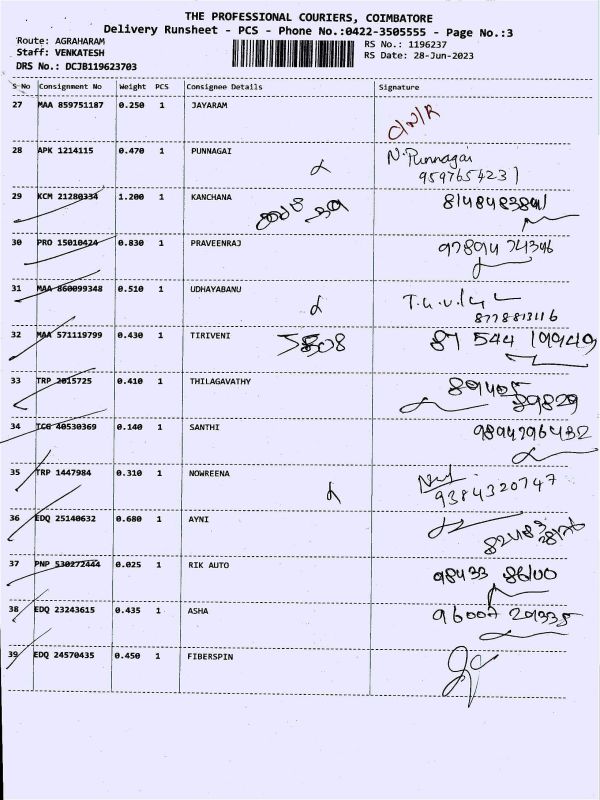 THE PROFESSIONAL COURIERS, COIMBATORE
Delivery Runsheet - PCS - Phone No.:0422-3505555 - Page No.:3
Route: AGRAHARAM RS No.: 1196237
Staff: VENKATESH RS Date: 28-Jun-2023
DRS No.: DCJB119623703
S No Consignment No Weight PCS Consignee Details Signature
27 MAA 859751187 0.250 1 JAYARAM
28 APK 1214115 0.470 1 PUNNAGAI N. Punnagai
9597654231
29 KCM 21280334 1.200 1 KANCHANA
30 PRO 15010424 0.830 1 PRAVEENRAJ 9789474346
31 MAA 860099348 0.510 1 UDHAYABANU
8778813116
32 MAA 571119799 0.430 1 TIRIVENI 87 544 19949
33 TRP 2015725 0.410 1 THILAGAVATHY 89405
89829
34 TCG 40530369 0.140 1 SANTHI 9894796432
35 TRP 1447984 0.310 1 NOWREENA
9384320747
36 EDQ 25140632 0.680 1 AYNI
37 PNP 530272444 0.025 1 RIK AUTO 98433 86100
38 EDQ 23243615 0.435 1 ASHA 96007 29335
39 EDQ 24570435 0.450 1 FIBERSPIN